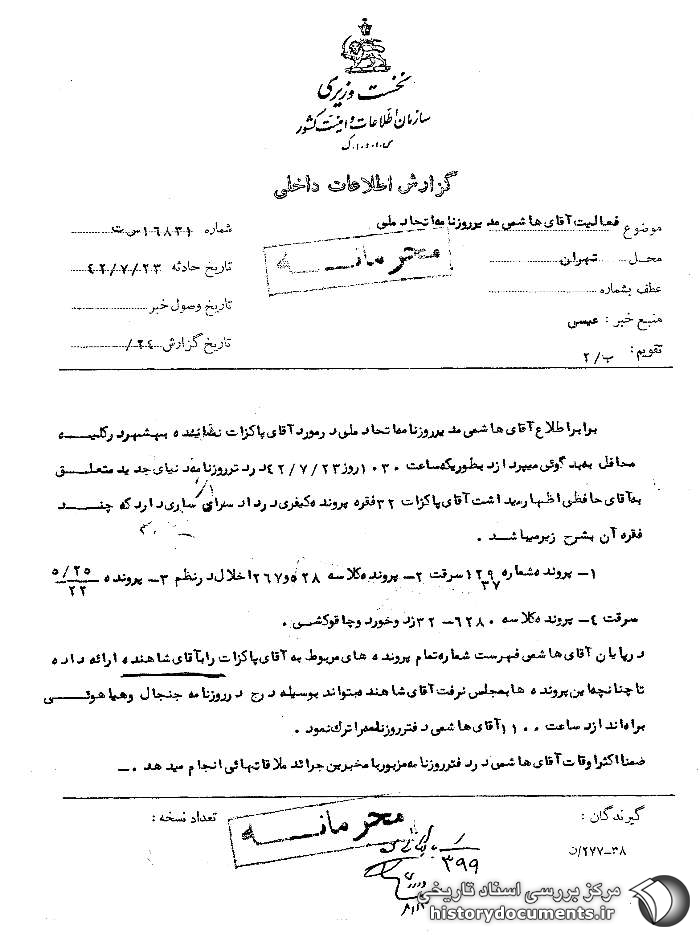 نخست وزیری
سازمان اطلاعات و امنیت کشور
گزارش اطلاعات داخلی
موضوع فعالیت آقای هاشمی مدیر روزنامه اتحاد ملی
شماره ۱۶۸۳۱ س ت
محل تهران
تاریخ حادثه ۴۲/۷/۲۳
محرمانه
عطف بشماره
تاریخ وصول خبر
منبع خبر : عیسی
تاریخ گزارش ۲۴/
تقویم : ب/۲
برابر اطلاع آقای هاشمی مدیر روزنامه اتحاد ملی در مورد آقای پاکزات نماینده بهشهر در کلیه
محافل به بدگوئی میپردازد بطوریکه ساعت ۱۰۳۰ روز ۴۲/۷/۲۳ در دفتر روزنامه دنیای جدید متعلق
به آقای حافظی اظهار میداشت آقای پاکزات ۳۲ فقره پرونده کیفری در دادسرای ساری دارد که چند
فقره آن بشرح زیر میباشد .
۱- پرونده شماره ۱۲۹/۳۷ سرقت ۲- پرونده کلاسه ۵۲۸ و ۲۶۷ اخلال در نظم ۳- پرونده ۵/۲۵/۲۲
سرقت ۴- پرونده کلاسه ۶۲۸۰-۳۲ زد و خورد و چاقوکشی .
در پایان آقای هاشمی فهرست شماره تمام پرونده های مربوط به آقای پاکزات را به آقای شاهنده ارائه داده
تا چنانچه این پرونده ها بمجلس نرفت آقای شاهنده بتواند بوسیله درج در روزنامه جنجال و هیاهوئی
براه اندازد ساعت ۱۱۰۰ آقای هاشمی دفتر روزنامه را ترک نمود .
ضمنا اکثر اوقات آقای هاشمی در دفتر روزنامه مزبور با مخبرین جرائد ملاقاتهائی انجام میدهد .
گیرندگان :
تعداد نسخه :
محرمانه
۳۹۹
۲۷۷-۳۸/ن
مرکز بررسی اسناد تاریخی
historydocuments.ir